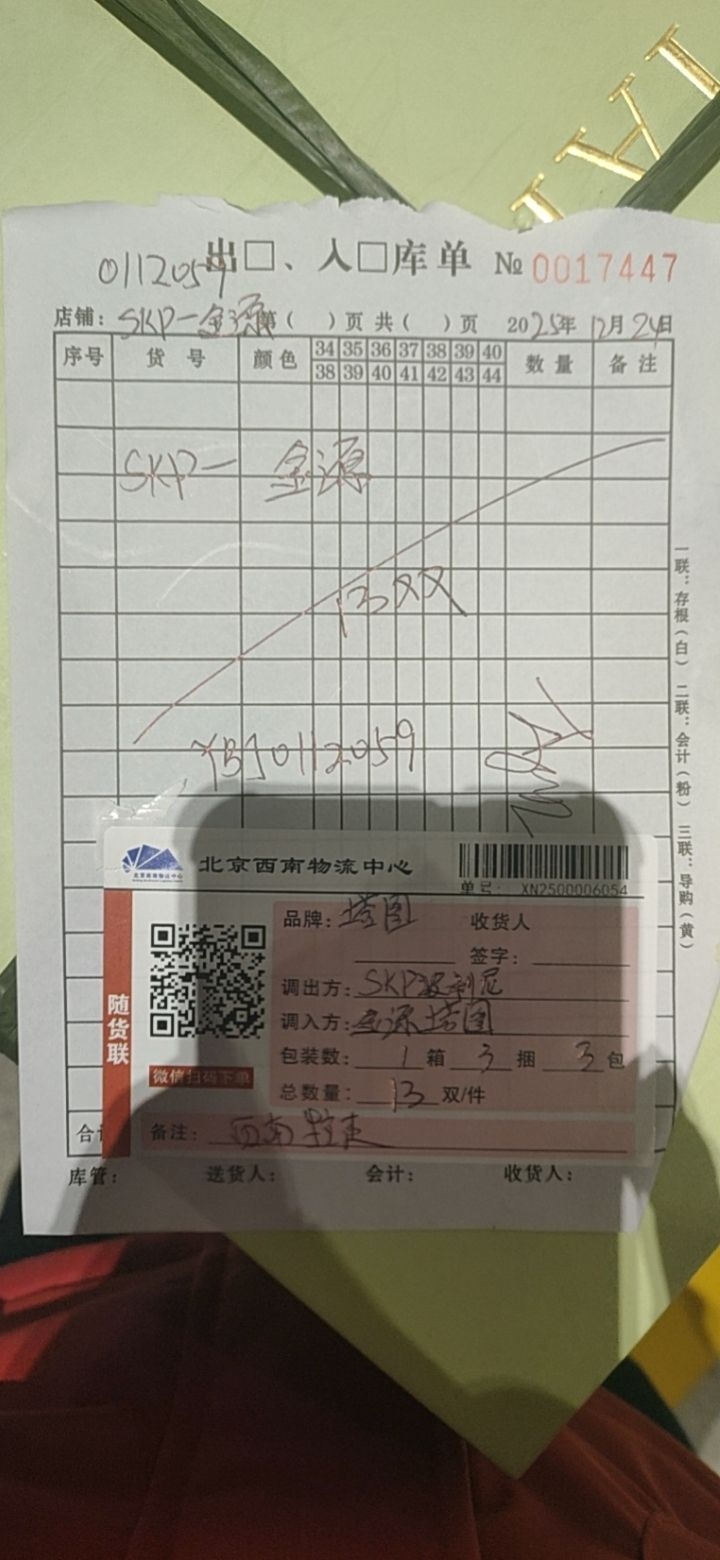 0112059
出□、入□库单 № 0017447
店铺：SKP一金源 第（ ）页 共（ ）页 2025年 12月 24日
序号 货号 颜色 34 35 36 37 38 39 40 数量 备注
38 39 40 41 42 43 44
SKP一 金源
13双
YBJ0112059
一联：存根（白） 二联：会计（粉） 三联：导购（黄）
北京西南物流中心
单号： XN2500006054
品牌：塔图 收货人
签字：
调出方：SKP
调入方：金源塔图
包装数： 1 箱 3 捆 3 包
总数量： 13 双/件
备注： 西南
随货联
微信扫码下单
合计
库管： 送货人： 会计： 收货人：